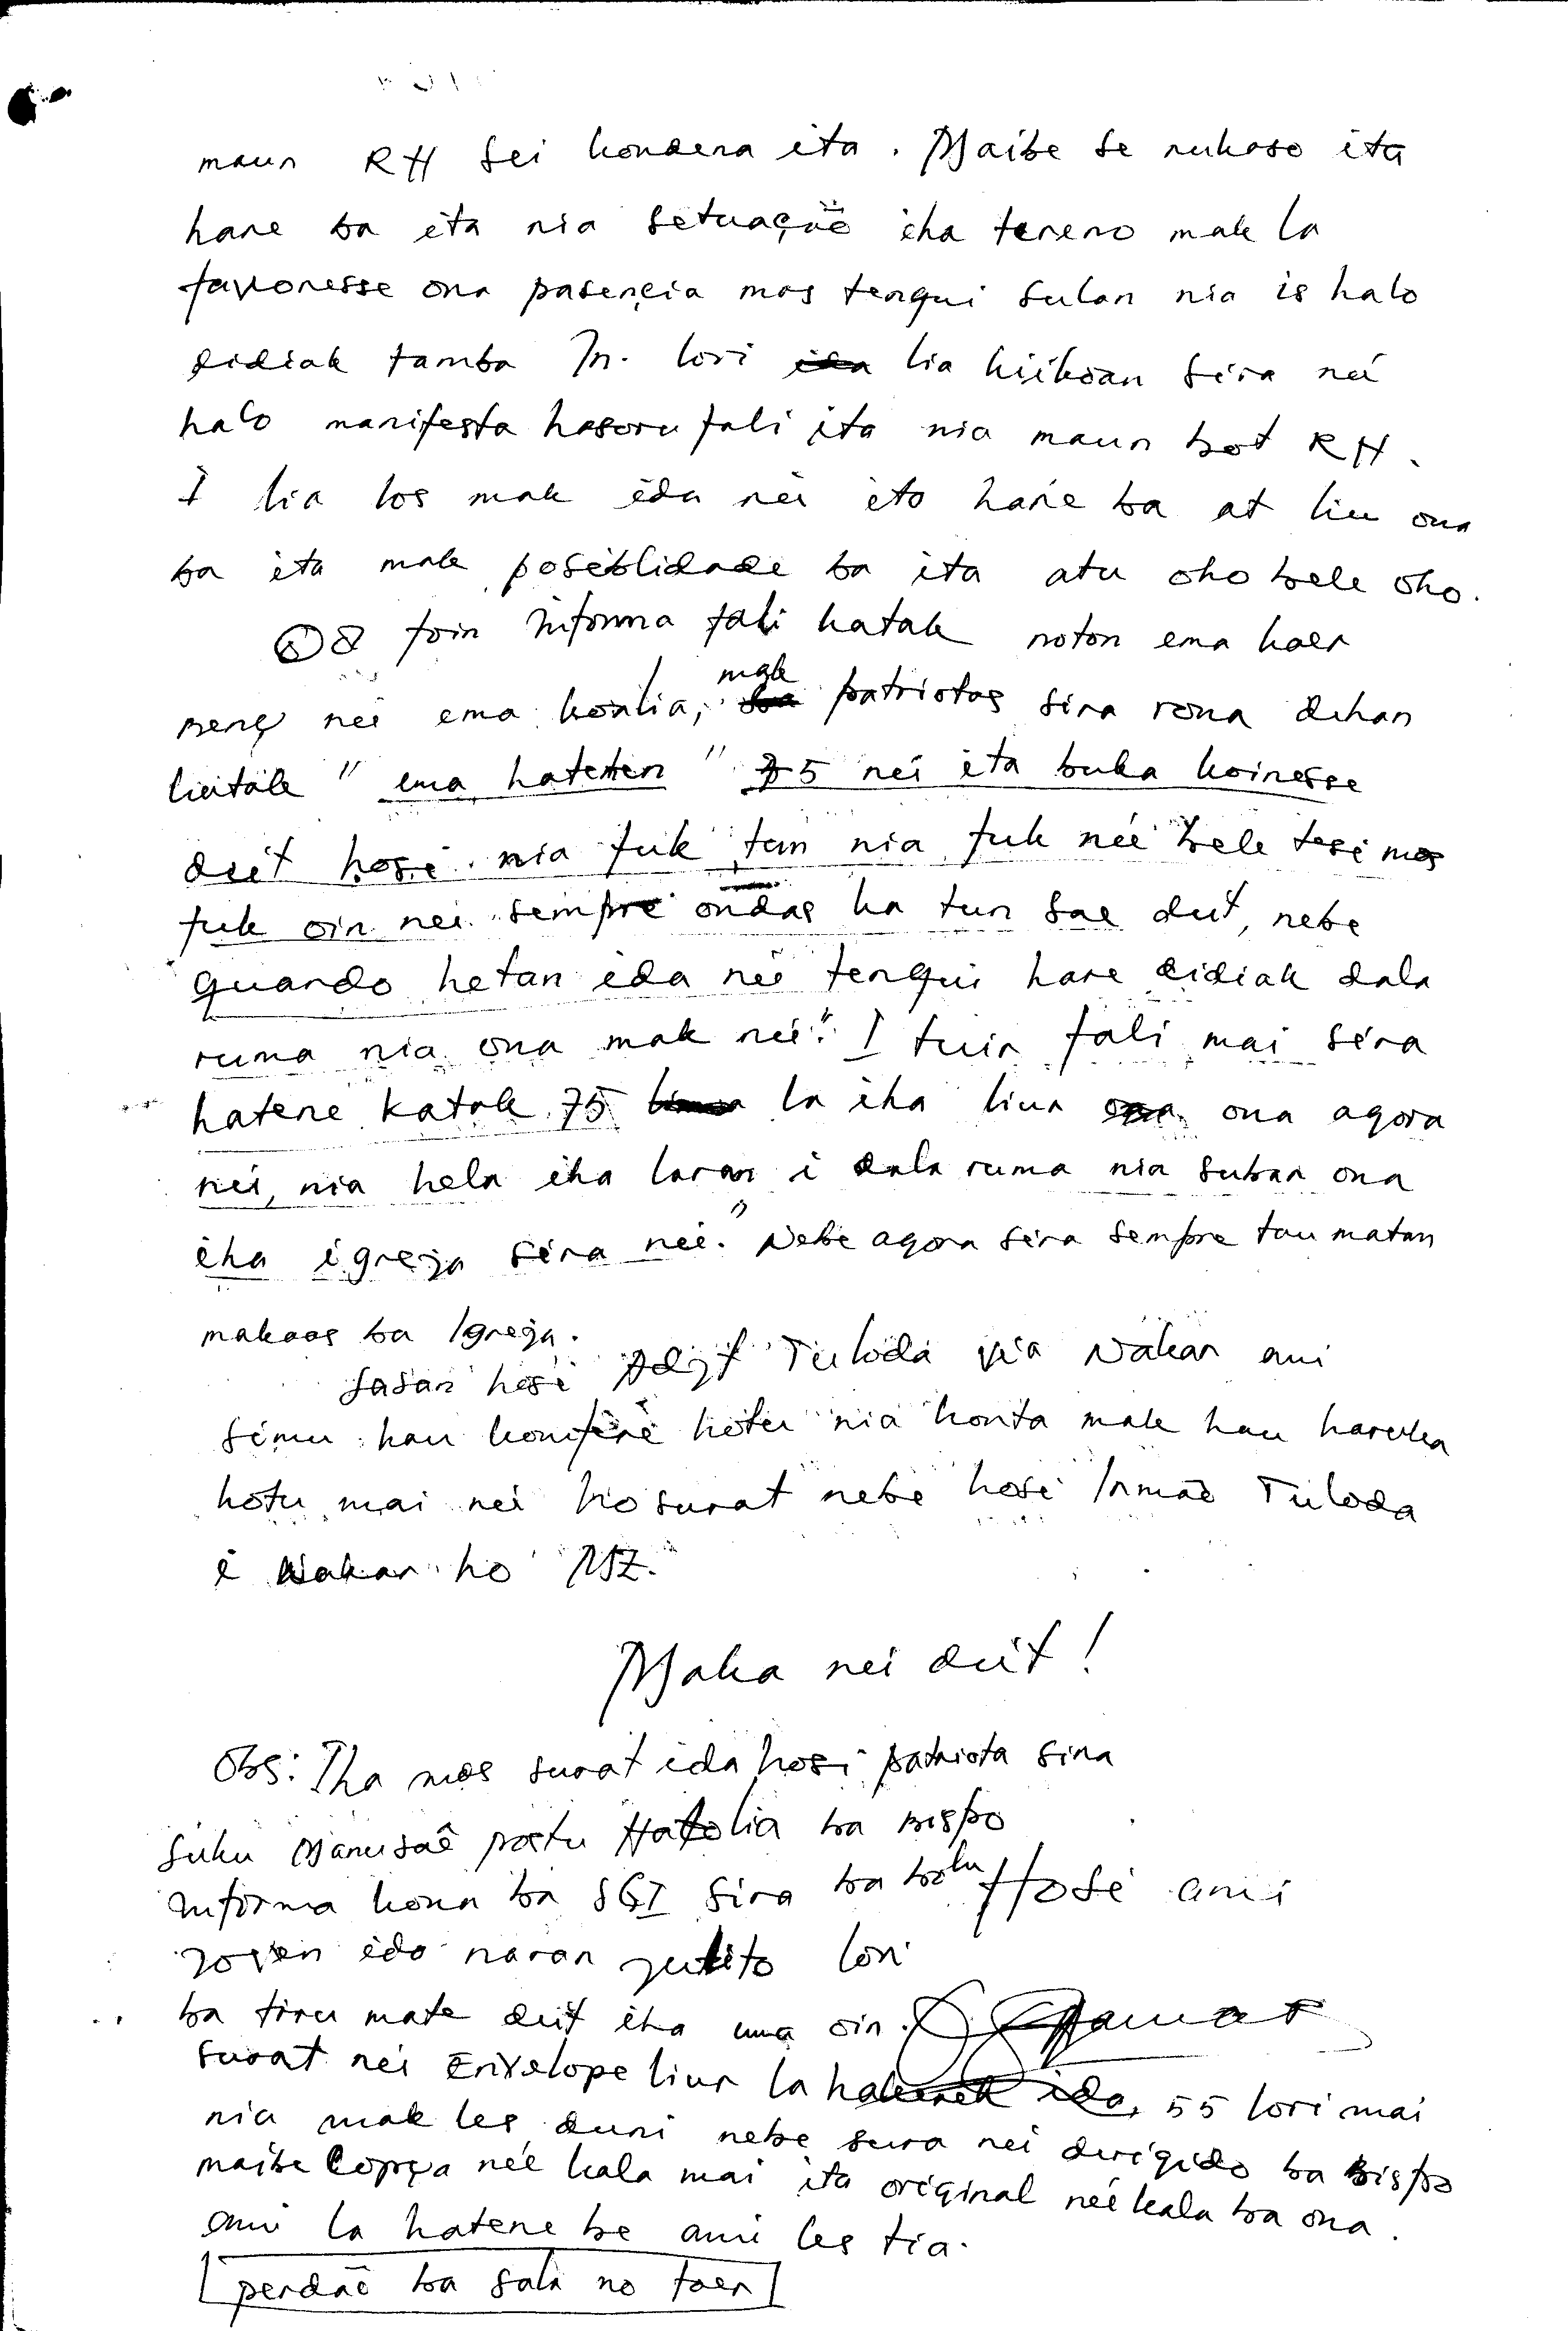 maun RH sei kondena ita. Maibe se nukaso ita
hare ba ita nia setuação iha tereno mak la
favoresse ona pasencia mos tenqui sulan nia is halo
didiak tamba In. lori lia kiikoan sira neé
halo manifesta hasoru fali ita nia maun bot RH.
I lia los mak ida neé ita hare ba at liu ona
ba ita mak poseblidade ba ita atu oho bele oho.
toin informa fali katak noton ema kaer
neé ema koalia, mak patriotas sira rona dehan
liutak " ema hatenen " 75 neé ita buka koinesse
deit hosi nia fuk tan nia fuk neé bele tesi mos
fuk oin neé sempre ondas ka tun sae deit, nebe
quando hetan ida neé tenqui hare didiak dala
ruma nia ona mak neé." I tuir fali mai sira
hatene katak 75 la iha liur ona agora
neé, nia hela iha laran i dala ruma nia subar ona
iha igreja sira neé." Nebe agora sira sempre tau matan
makaas ba Igreja.
Sasan hosi Adjt Tuloda via Nakar ami
simu hau konferê hotu nia konta mak hau haruka
hotu mai neé ho surat nebe hosi Irmão Tuloda
i Nakar ho NZ.
Maka neé deit!
Obs: Iha mos surat ida hosi patriota sira
suku Manusaê postu Hatolia ba bispo
informa kona ba SGI sira ba bolu Hosé ami
joven ida naran Julito lori
ba tiru mate deit iha uma oin.
surat neé Envelope liur la hakerek ida, 55 lori mai
nia mak les duni nebe sura neé dirigido ba bispo
maibe Copya neé kala mai ita original neé kala ba ona.
ami la hatene be ami les tia.
perdão ba sala no foer